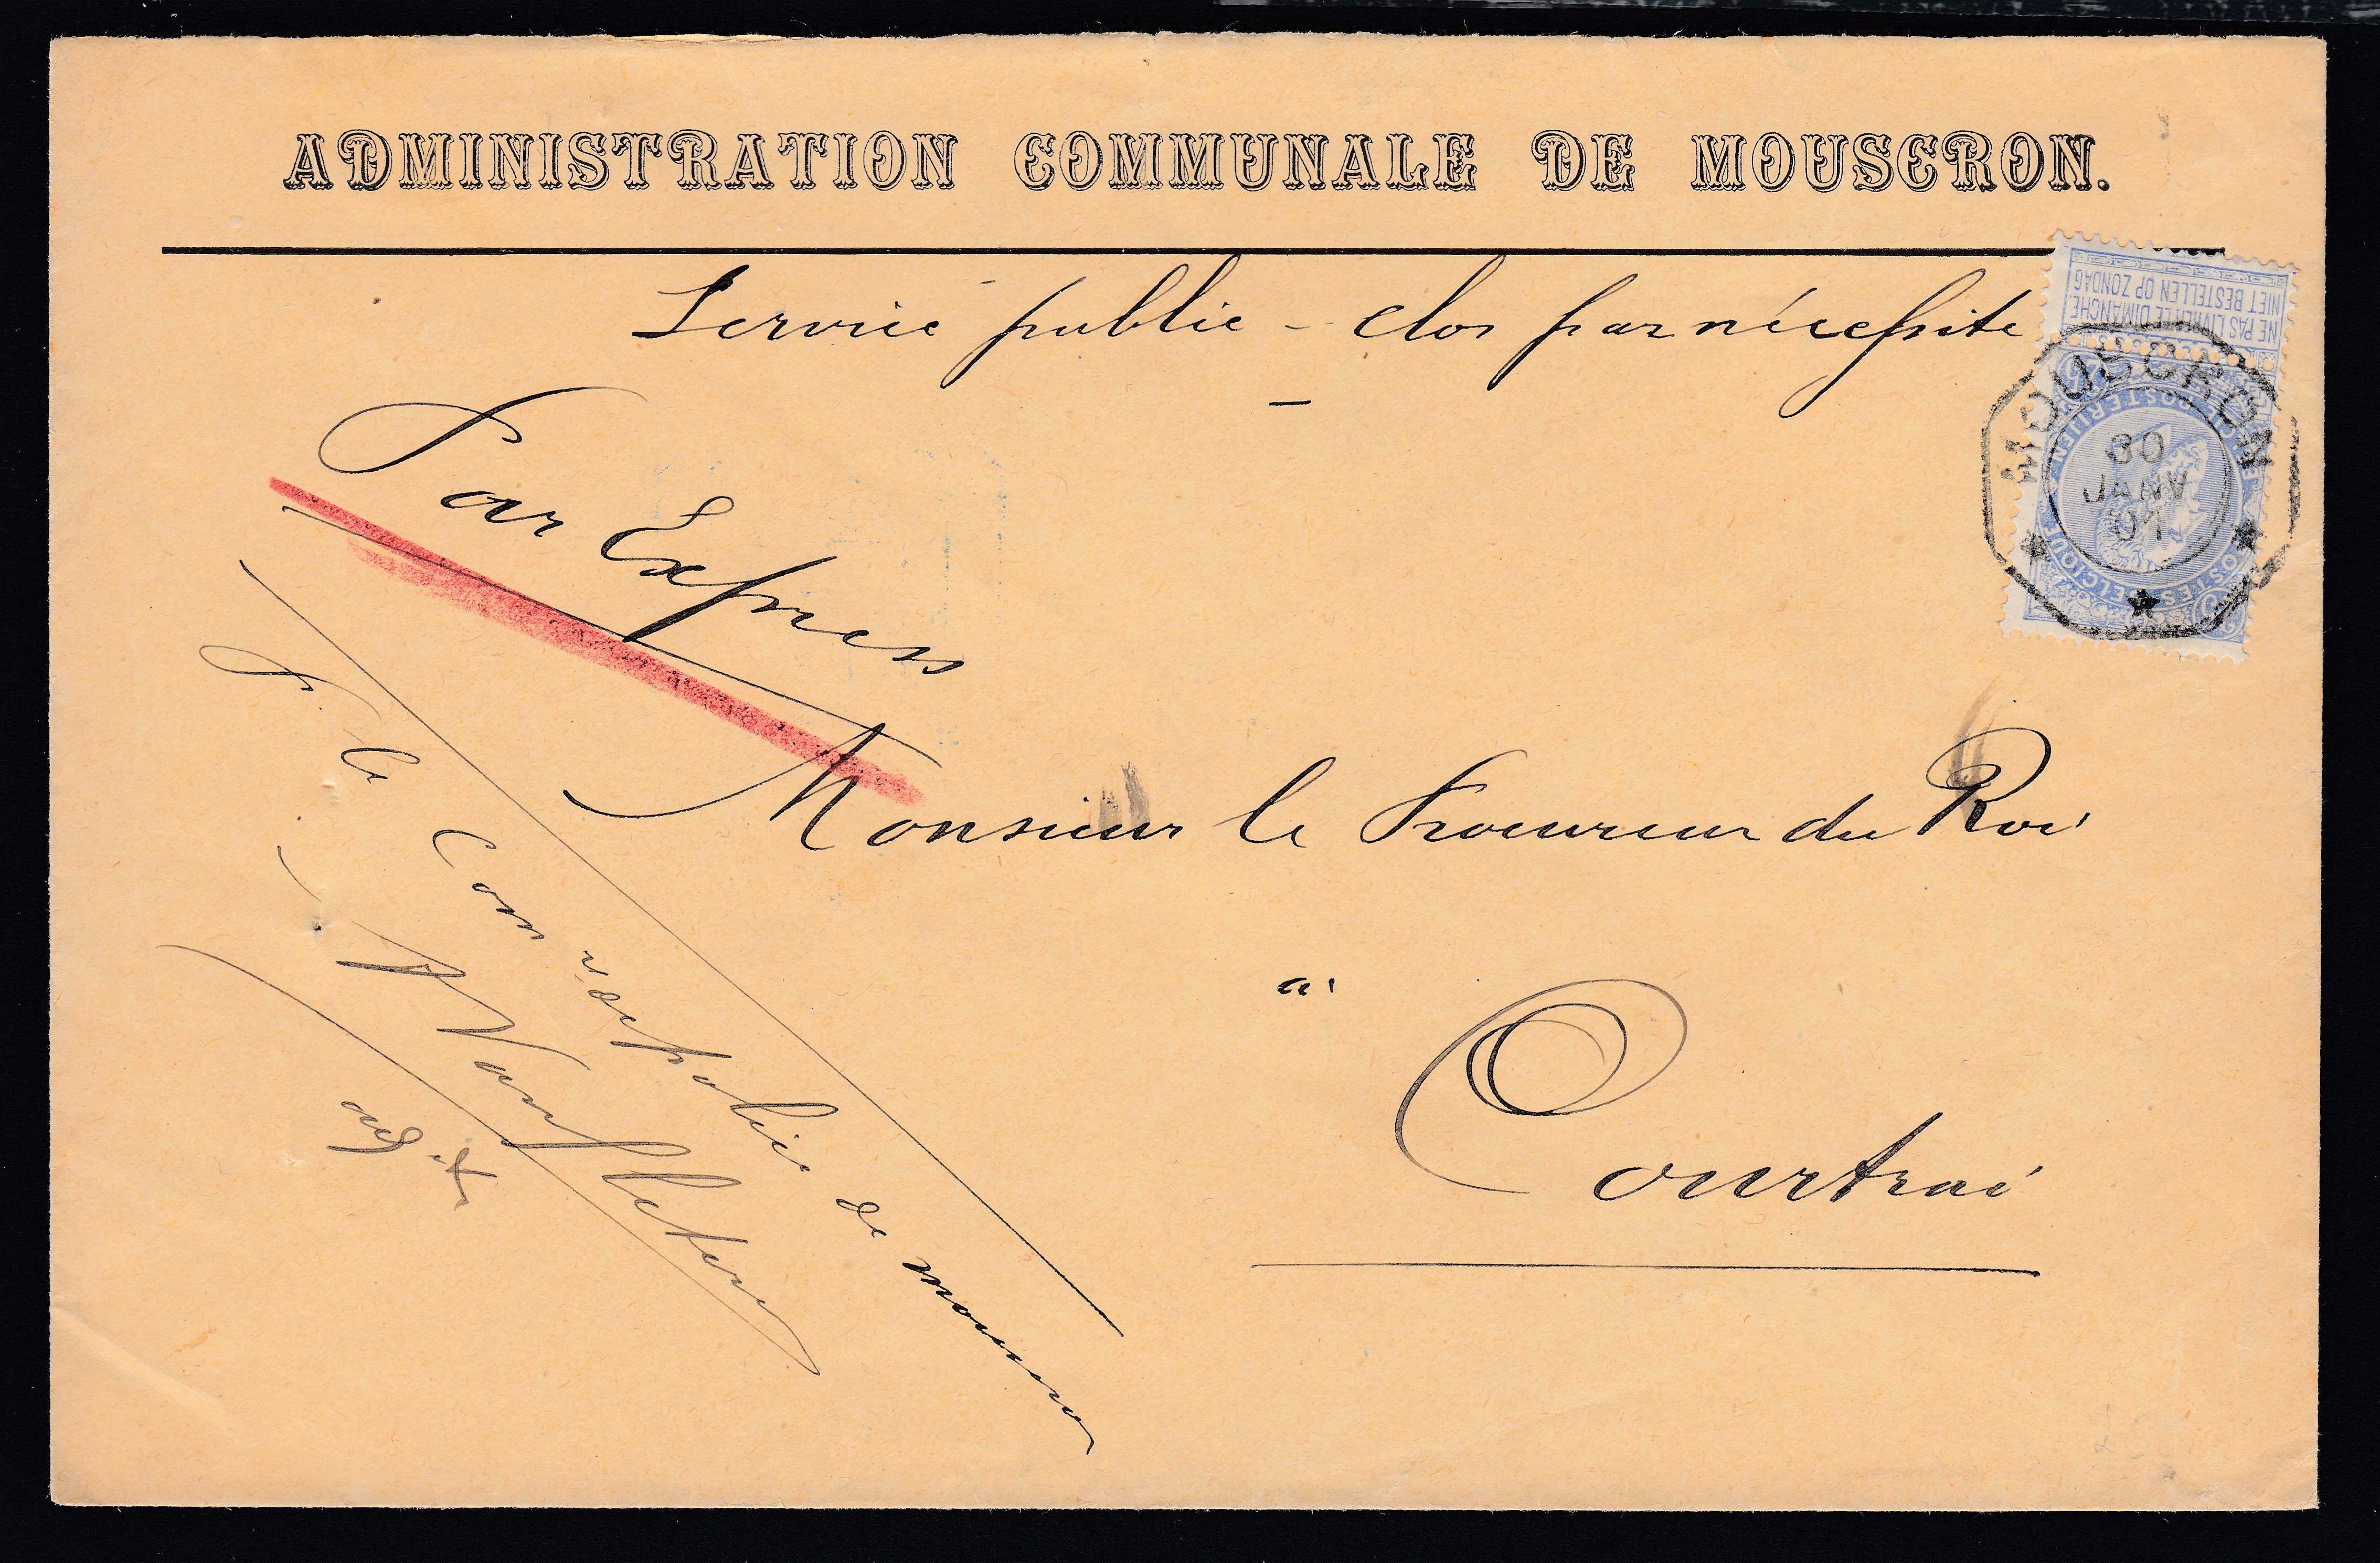 ADMINISTRATION COMMUNALE DE MOUSCRON.
Service public - clos par nécessite
Par Express
Monsieur le Procureur du Roi
à
Courtrai
P. le Com re de police de mouscron
NE PAS LIVRER LE DIMANCHE
NIET BESTELLEN OP ZONDAG
MOUSCRON
30
JANV
01
POSTERIJEN
POSTES BELGIQUE